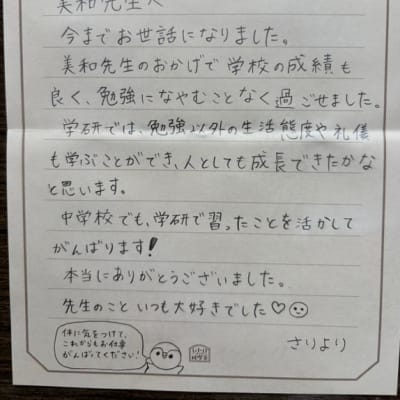 美和先生へ
今までお世話になりました。
美和先生のおかげで学校の成績も
良く、勉強になやむことなく過ごせました。
学研では、勉強以外の生活態度や礼儀
も学ぶことができ、人としても成長できたかな
と思います。
中学校でも、学研で習ったことを活かして
がんばります!
本当にありがとうございました。
先生のこといつも大好きでした♡
さりより
体に気をつけて、
これからもお仕事
がんばってください!